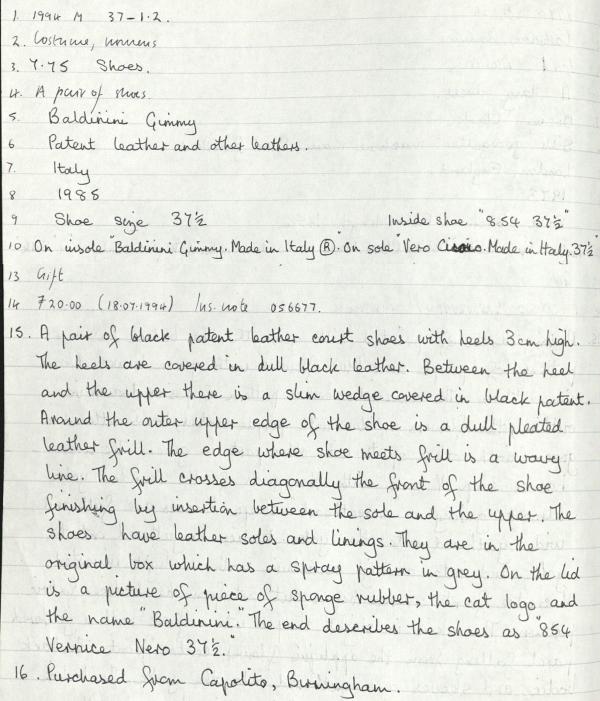 1. 1994 M 37-1.2.
2. Costume, womens
3. 7.75 Shoes.
4. A pair of shoes
5. Baldinini Gimmy
6 Patent leather and other leathers.
7. Italy
8 1985
9 Shoe size 37½ Inside shoe "854 37½"
10 On insole "Baldinini Gimmy. Made in Italy ®." On sole "Vero. Made in Italy. 37½"
13 Gift
14 £20.00 (18.07.1994) Ins. note 056677.
15. A pair of black patent leather court shoes with heels 3cm high.
The heels are covered in dull black leather. Between the heel
and the upper there is a slim wedge covered in black patent.
Around the outer upper edge of the shoe is a dull pleated
leather frill. The edge where shoe meets frill is a wavy
line. The frill crosses diagonally the front of the shoe
finishing by insertion between the sole and the upper. The
shoes have leather soles and linings. They are in the
original box which has a spray pattern in grey. On the lid
is a picture of piece of sponge rubber, the cat logo and
the name "Baldinini". The end describes the shoes as "854
Vernice Nero 37½."
16. Purchased from Capolito, Birmingham.